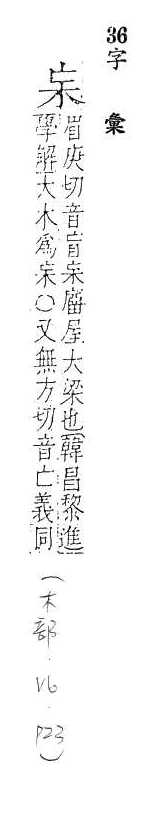 36字彙
杗
眉庚切音盲杗廇屋大梁也韓昌黎進
學解大木為杗○又無方切音亡義同
(木部.V6.P23)